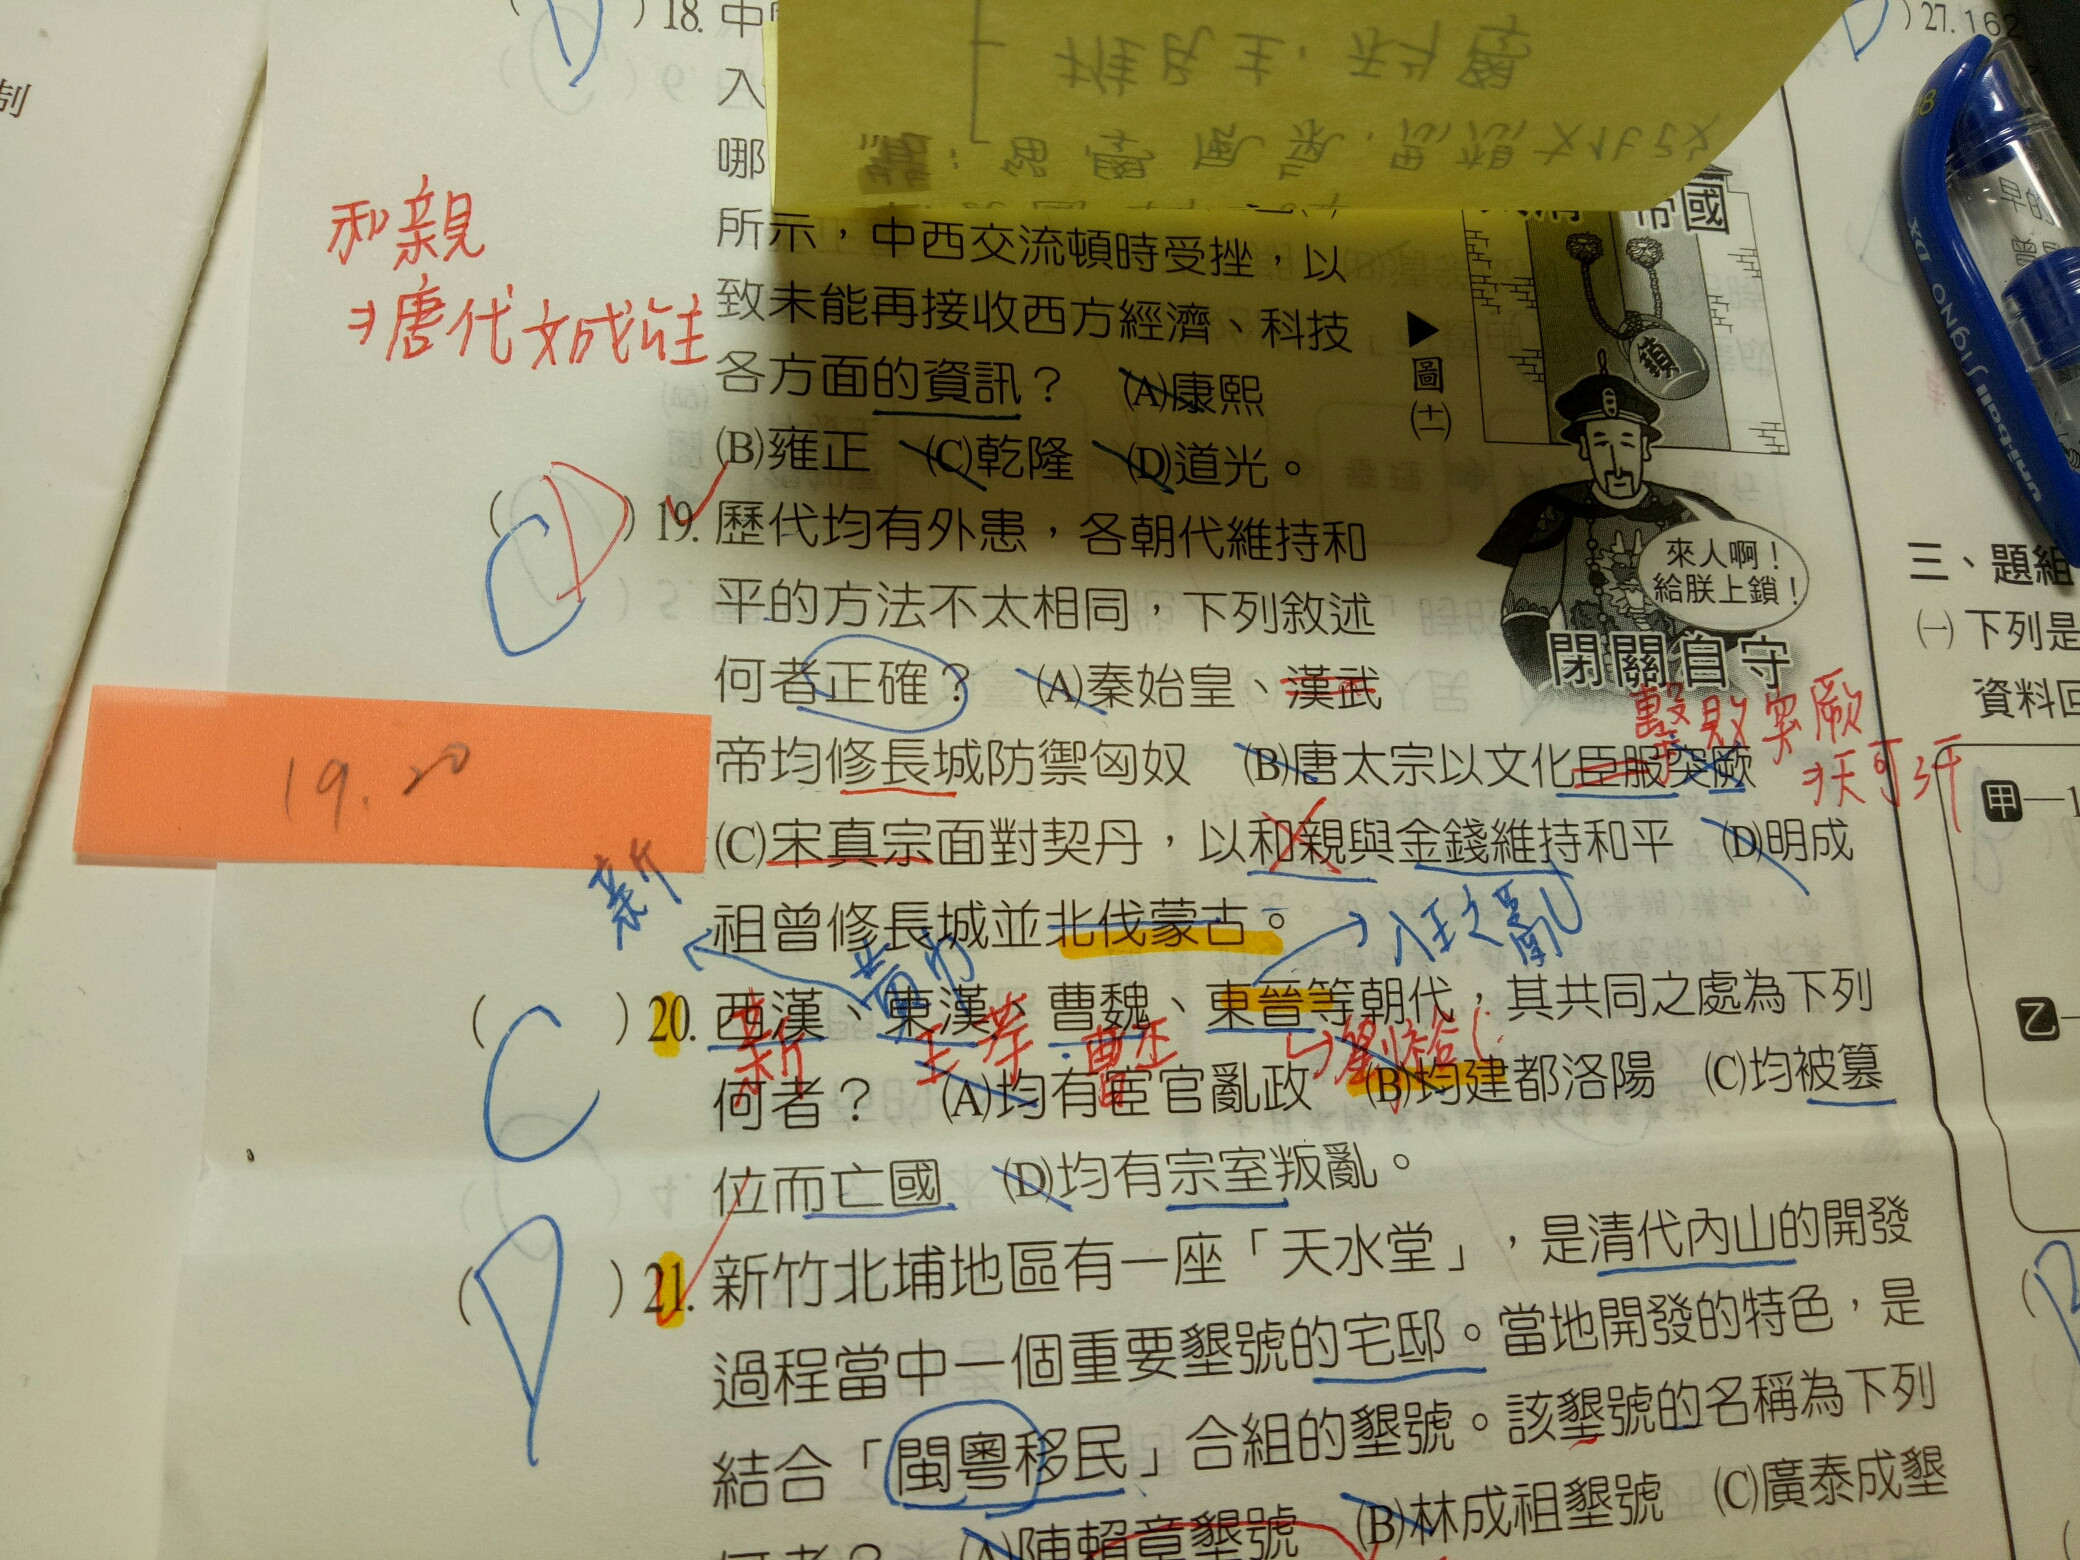 制
18. 中
入
哪
所示，中西交流頓時受挫，以
致未能再接收西方經濟、科技
各方面的資訊？ (A)康熙
(B)雍正 (C)乾隆 (D)道光。
帝國
鎖
▶圖(十一)
來人啊！
給朕上鎖！
閉關自守
和親
唐代文成公主
推民主、科學
D
( C D ) 19. 歷代均有外患，各朝代維持和
平的方法不太相同，下列敘述
何者正確？ (A)秦始皇、漢武
帝均修長城防禦匈奴 (B)唐太宗以文化臣服突厥
(C)宋真宗面對契丹，以和親與金錢維持和平 (D)明成
祖曾修長城並北伐蒙古。
擊敗突厥
天可汗
19. 20
新
八王之亂
( C ) 20. 西漢、東漢、曹魏、東晉等朝代，其共同之處為下列
新 王莽 曹丕 劉裕
何者？ (A)均有宦官亂政 (B)均建都洛陽 (C)均被篡
位而亡國 (D)均有宗室叛亂。
( D ) 21. 新竹北埔地區有一座「天水堂」，是清代內山的開發
過程當中一個重要墾號的宅邸。當地開發的特色，是
結合「閩粵移民」合組的墾號。該墾號的名稱為下列
何者？ (A)陳賴章墾號 (B)林成祖墾號 (C)廣泰成墾
D ) 27. 162
三、題組
(一) 下列是
資料回
甲—1
乙—
uni-ball Signo DX